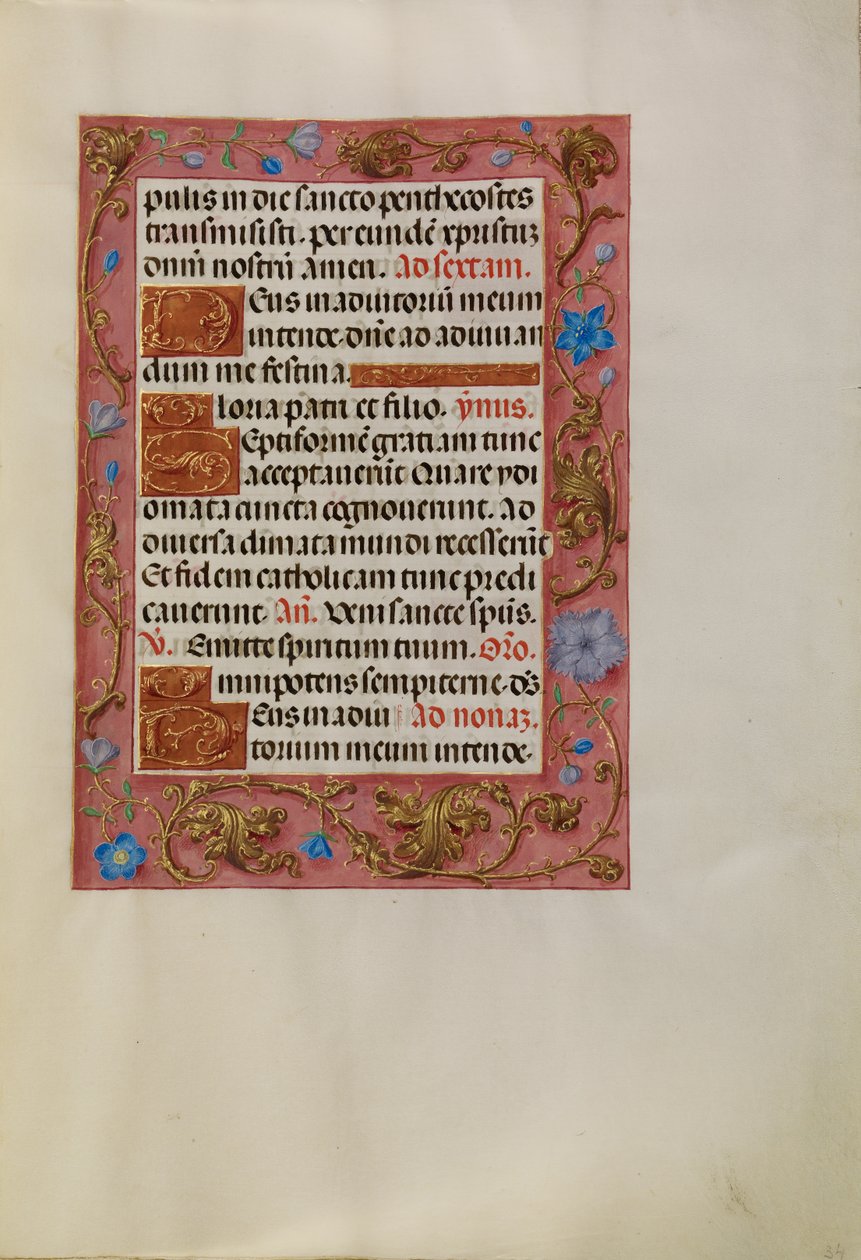 pulis in die sancto penthecostes
transmisisti. per eundē xpristuʒ
dnm̄ nostrū Amen. Ad sextam.
DEus in adiutoriū meum
intende. dn̄e ad adiuuan
dum me festina.
Gloria patri et filio. ȳnus.
SEptiformē gratiam tunc
acceptauerūt Quare ydi
omata cuncta cognouerunt. Ad
diuersa climata mundi recesserūt
Et fidem catholicam tunc predi
cauerunt. An̄. Veni sancte spūs.
V̄. Emitte spiritum tuum. Or̄o.
Omnipotens sempiterne. ds̄
DEus in adiu Ad nonaʒ.
torium meum intende.
34